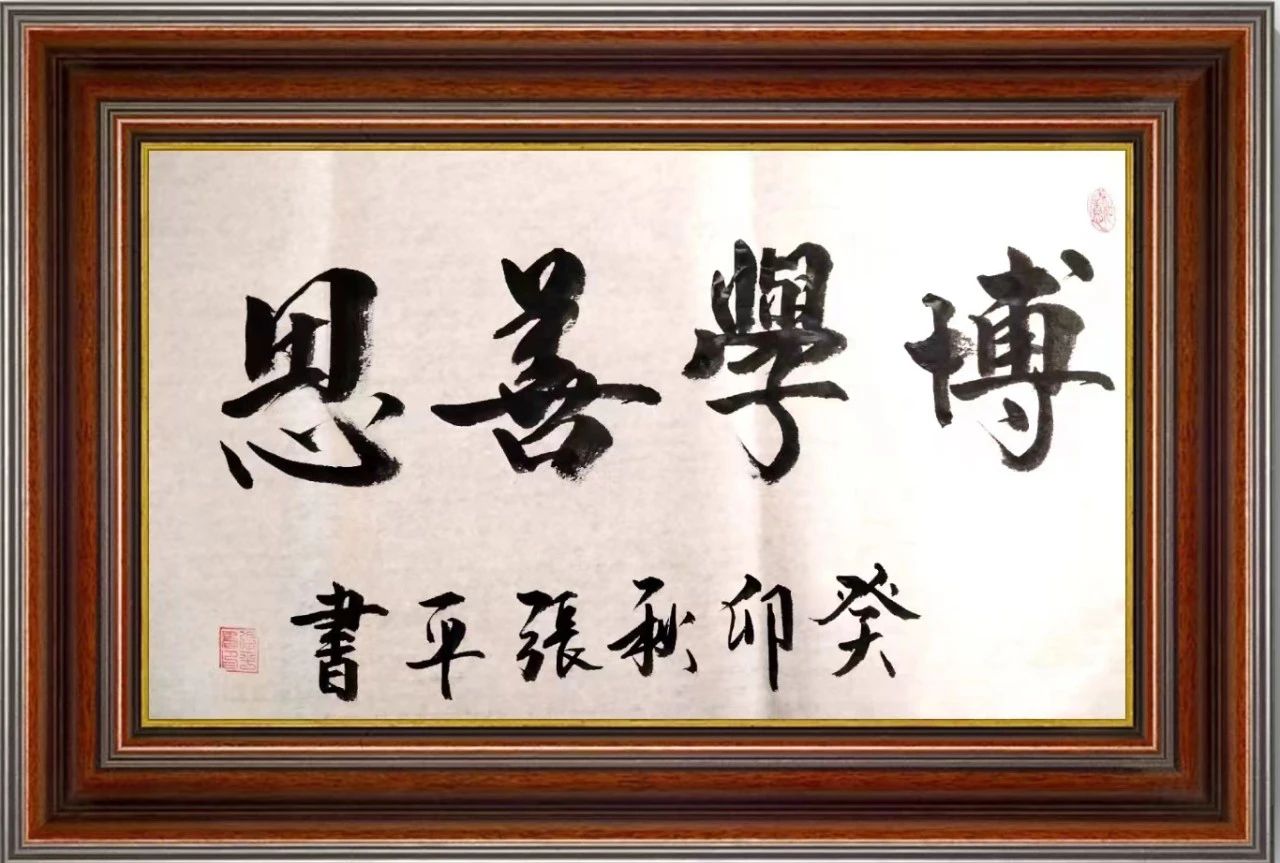 博學善思
癸卯秋張平書